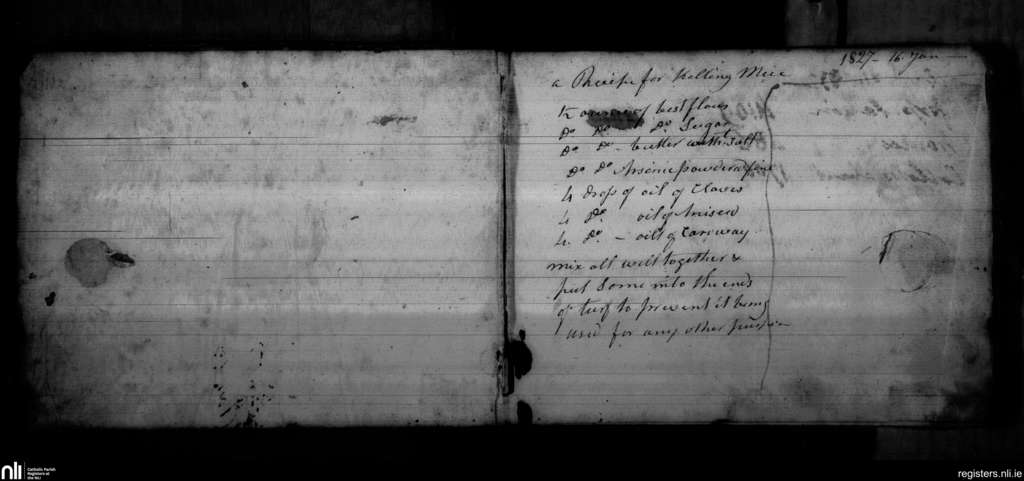 1827 - 16 Jan
a Receipe for Killing Mice
½ ounce of best flour
Do Do Do Sugar
Do Do - butter with salt
Do Do Arsenic powdered fine
4 drops of oil of Cloves
4 Do oil of Anised
4 Do - oill of Carriway
mix all well together &
put Some into the ends
of turf to prevent it being
used for any other purpose
nli
Catholic Parish
Registers at
the NLI
registers.nli.ie